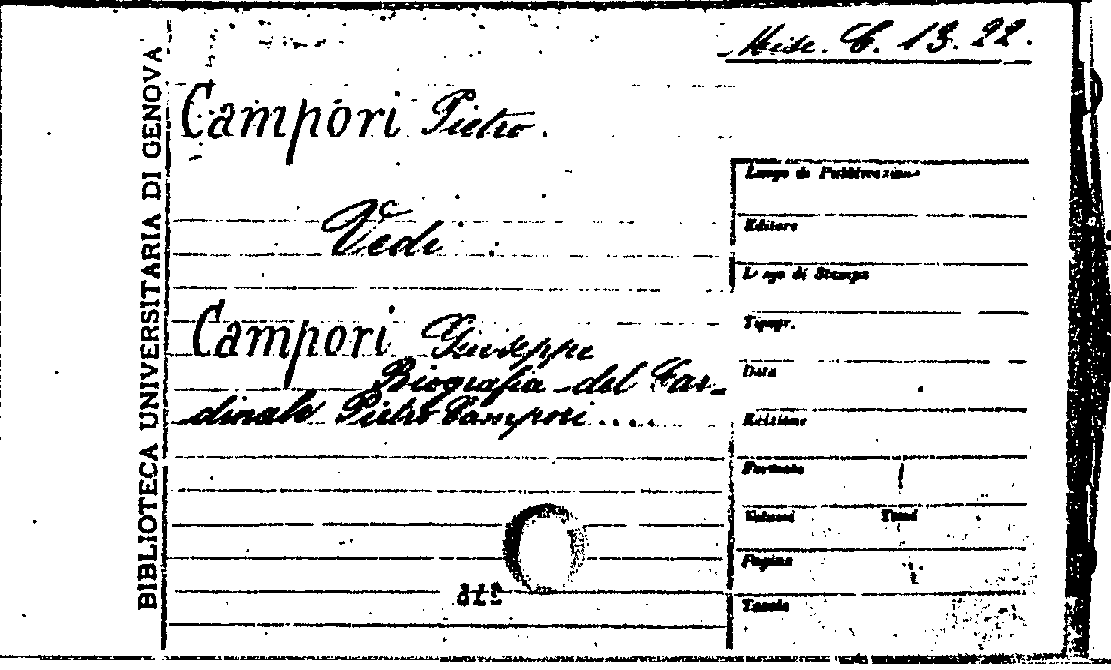 BIBLIOTECA UNIVERSITARIA DI GENOVA
Misc. C. 13. 22.
Campori Pietro.
Vedi :
Campori Giuseppe
Biografia del Car-
dinale Pietro Campori ....
Luogo di Pubblicazione
Editore
Luogo di Stampa
Tipogr.
Data
Edizione
Formato
Volumi Tomi
Pagine
Tavole